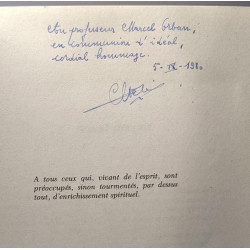 Au professeur Marcel Orban,
en communion d'idéal,
cordial hommage.
5-IX-1980
A tous ceux qui, vivant de l'esprit, sont
préoccupés, sinon tourmentés, par dessus
tout, d'enrichissement spirituel.